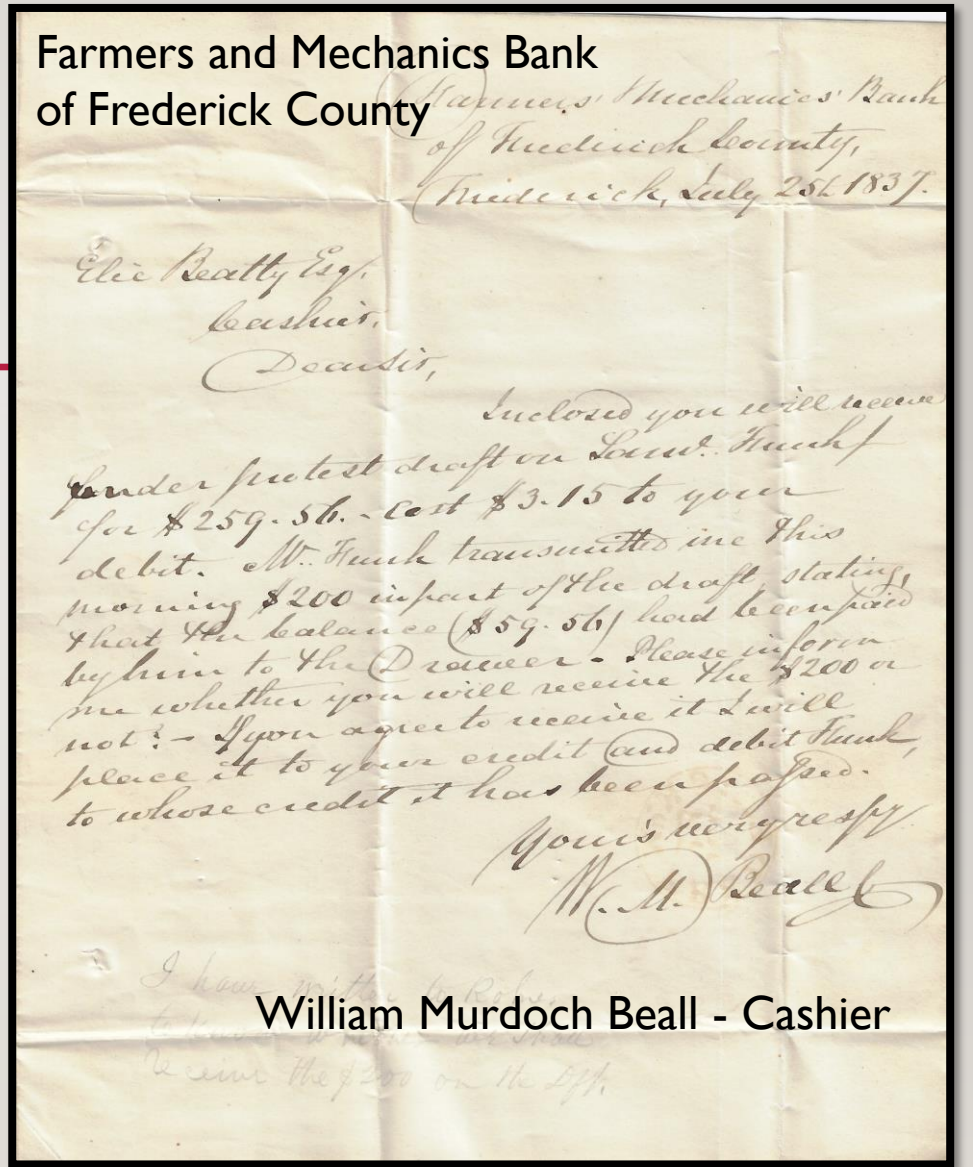 Farmers and Mechanics Bank
of Frederick County
Farmers' Mechanics' Bank
of Frederick County,
Frederick, July 25th 1837.
Elie Beatty Esqr.
Cashier.
Dear sir,
Inclosed you will receive
under protest draft on Saml. Funk
for $259.56. - Cost $3.15 to your
debit. Mr. Funk transmitted me this
morning $200 in part of the draft, stating,
that the balance ($59.56) had been paid
by him to the Drawer - Please inform
me whether you will receive the $200 or
not? - If you agree to receive it I will
place it to your credit and debit Funk,
to whose credit it has been passed.
Yours very respy
W. M. Beall
I have written to
William Murdoch Beall - Cashier
receive the $200 on the Dft.